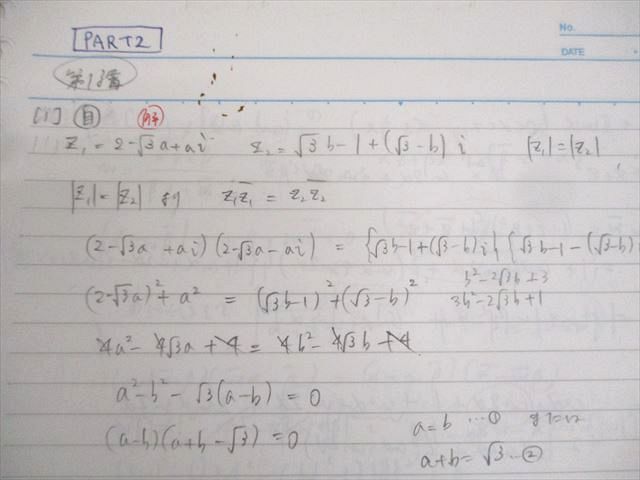 PART2
No.
DATE
第13章
[1] 自 解
z₁ = 2-√3a+ai z₂ = √3b-1+(√3-b)i |z₁|=|z₂|
|z₁|=|z₂| より z₁z̄₁ = z₂z̄₂
(2-√3a+ai)(2-√3a-ai) = {√3b-1+(√3-b)i}{√3b-1-(√3-b)
(2-√3a)²+a² = (√3b-1)²+(√3-b)²
b²-2√3b+3
3b²-2√3b+1
4a²-4√3a+4 = 4b²-4√3b+4
a²-b²-√3(a-b) = 0
(a-b)(a+b-√3) = 0
a=b …①
a+b=√3 …②